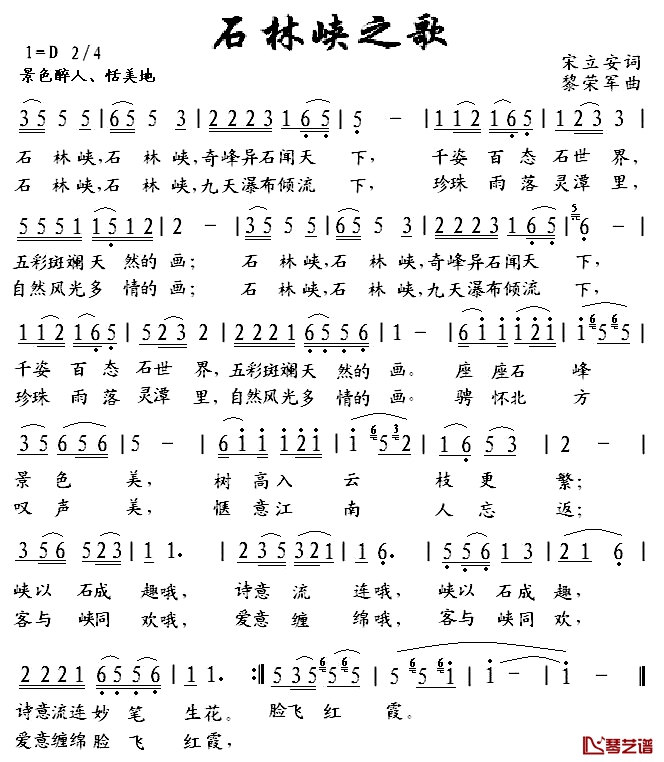 石林峡之歌
1=D 2/4
宋立安词
景色醉人、恬美地
黎荣军曲
3 5 5 5 | 6 5 5 3 | 2 2 2 3 1 6 5 | 5 － | 1 1 2 2 2 5 | 1 2 3 3 |
石 林 峡,石 林 峡,奇峰异石闻天 下, 千姿 百态 石世 界,
石 林 峡,石 林 峡,九天瀑布倾流 下, 珍珠 雨落 灵潭 里,
5 5 5 1 1 5 1 2 | 2 － | 3 5 5 5 | 6 5 5 3 | 2 2 2 3 1 6 5 | 5 6 － |
五彩斑斓天 然的 画; 石 林 峡,石 林 峡,奇峰异石闻天 下,
自然风光多 情的 画; 石 林 峡,石 林 峡,九天瀑布倾流 下,
1 1 2 1 6 5 | 5 2 2 3 | 2 2 2 1 6 5 5 6 | 1 － | 6 1 1 1 2 1 | 1 6 5 6 5 |
千姿 百 态 石世 界,五彩斑斓天 然的 画。 座 座石 峰
珍珠 雨 落 灵潭 里,自然风光多 情的 画。 骋 怀北 方
3 5 6 5 6 | 5 － | 6 1 1 1 2 1 | 1 6 5 3 2 | 1 6 5 3 | 2 － |
景 色 美, 树 高入 云 枝 更 繁;
叹 声 美, 惬 意江 南 人 忘 返;
3 5 6 5 2 3 | 1 1. | 2 3 5 3 2 1 | 6 6. | 5 5 6 1 3 | 2 1 6 |
峡以 石成 趣哦, 诗意 流 连哦, 峡以 石成 趣,
客与 峡同 欢哦, 爱意 缠 绵哦, 客与 峡同 欢,
2 2 2 1 6 5 5 6 | 1 1. :‖ 5 3 5 6 5 6 5 | 5 5 5 1 | 1 － | 1 － ‖
诗意流连 妙 笔 生花。 脸飞 红 霞。
爱意缠绵 脸 飞 红霞,
琴艺谱